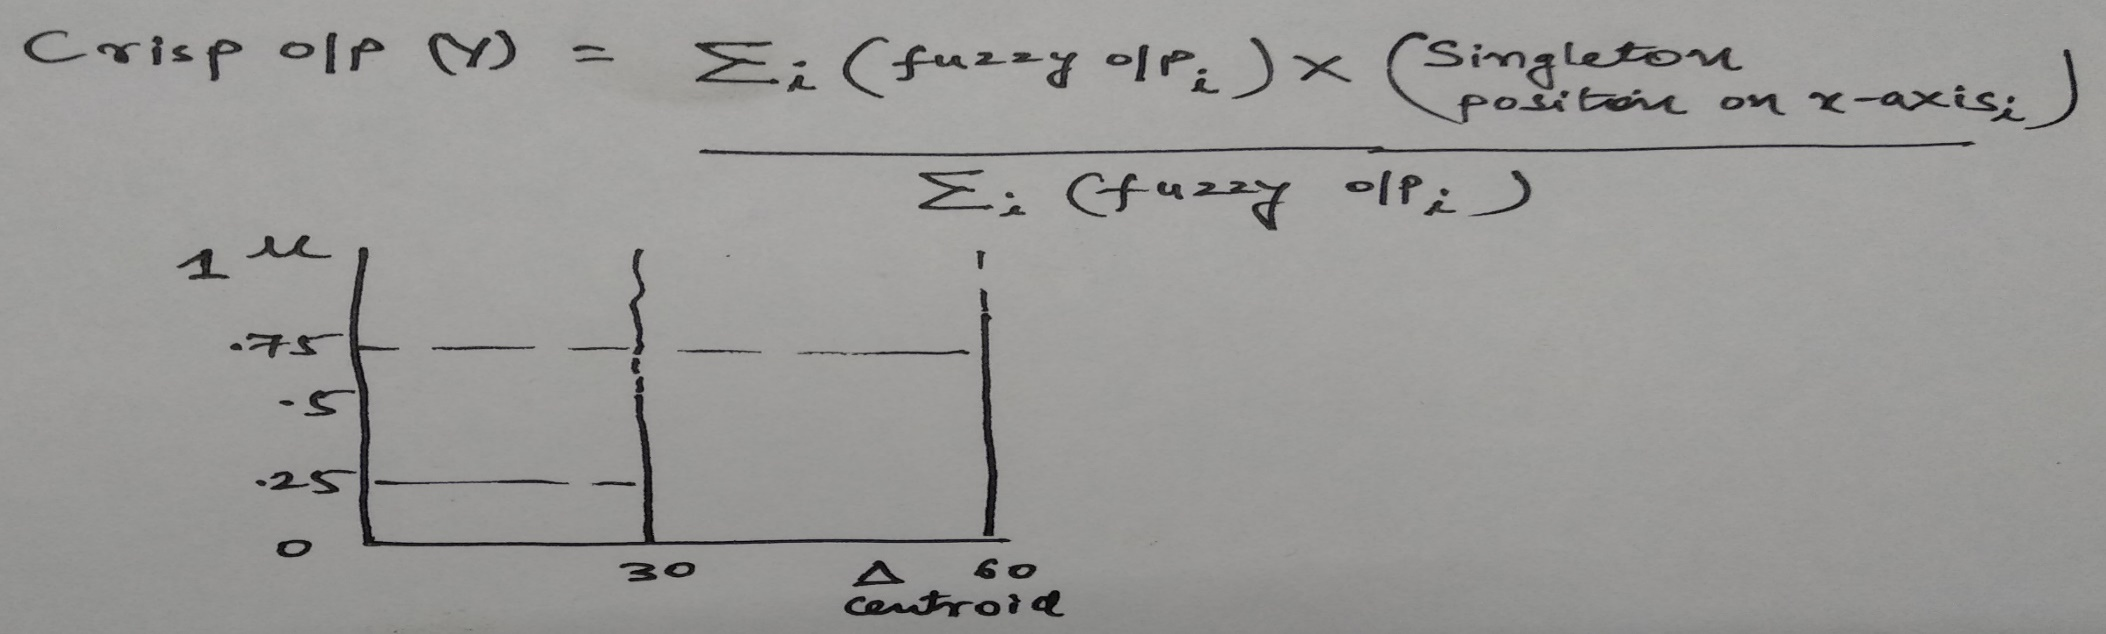 Crisp o/p (Y) = Σi (fuzzy o/pi) × (Singleton position on x-axisi)
Σi (fuzzy o/pi)
1 μ
.75
.5
.25
0
30 Δ 60
centroid